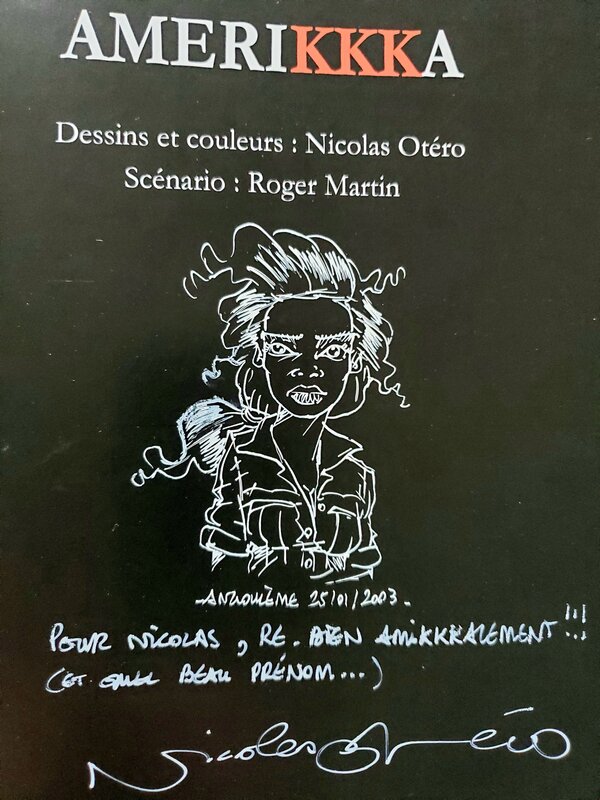 AMERIKKKA
Dessins et couleurs : Nicolas Otéro
Scénario : Roger Martin
ANGOULÈME 25/01/2003.
POUR NICOLAS, RE. BIEN AMIKKKALEMENT !!!
(ET QUEL BEAU PRÉNOM...)
Nicolas Otéro